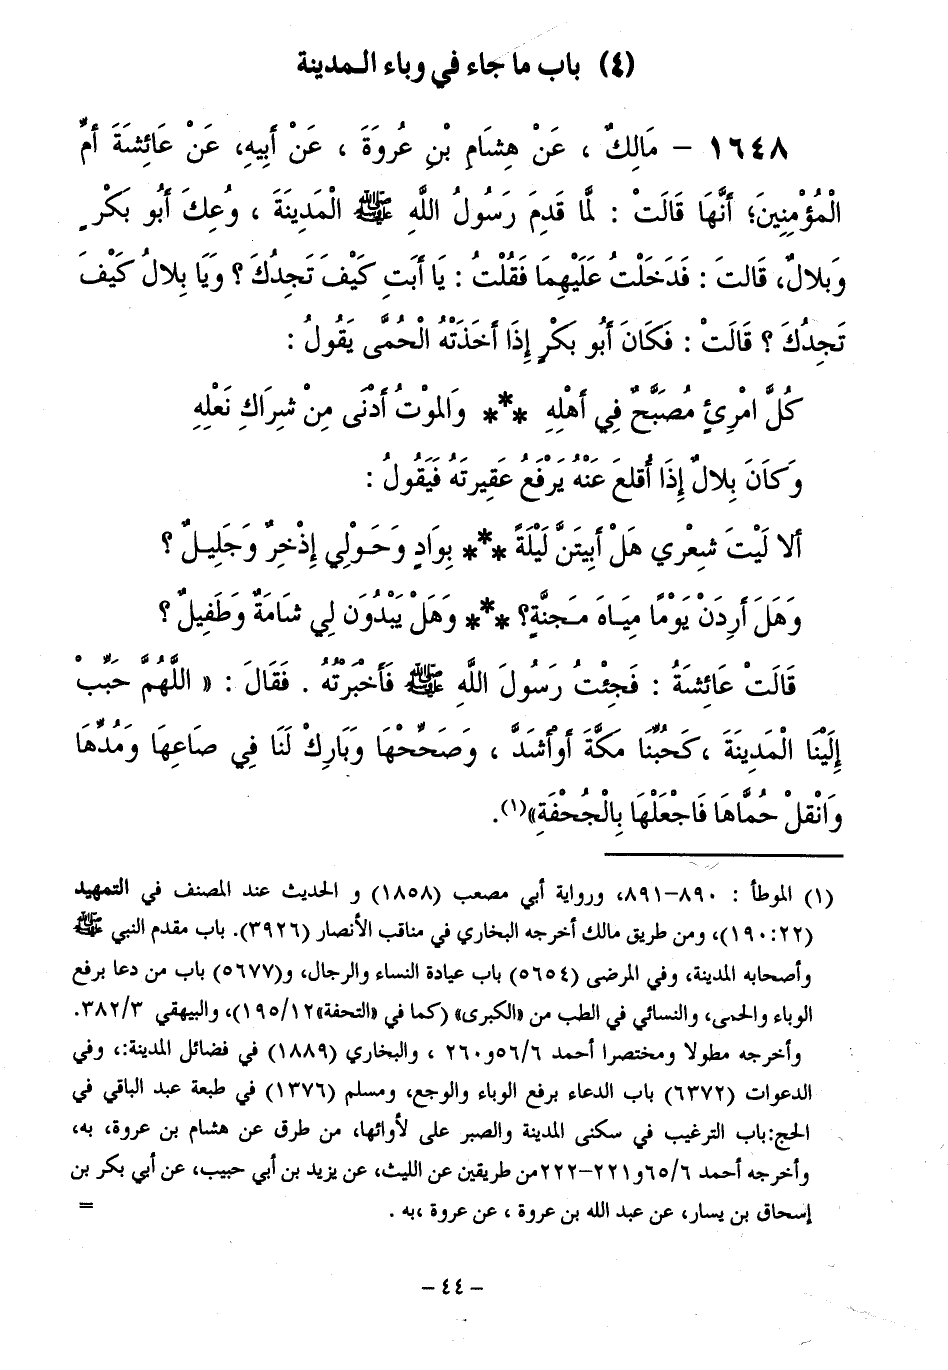 (٤) باب ما جاء في وباء المدينة
١٦٤٨ – مَالِكٌ ، عَنْ هِشَامِ بْنِ عُروَةَ ، عَنْ أَبِيهِ، عَنْ عَائِشَةَ أُمِّ
الْمُؤْمِنِينَ؛ أَنَّهَا قَالَتْ : لَمَّا قَدِمَ رَسُولُ اللَّهِ ﷺ الْمَدِينَةَ ، وُعِكَ أَبُو بَكْرٍ
وَبلالٌ، قَالتَ : فَدَخَلْتُ عَلَيْهِمَا فَقُلْتُ : يَا أَبَتِ كَيْفَ تَجِدُكَ ؟ وَيَا بِلالُ كَيْفَ
تَجِدُكَ ؟ قَالَتْ : فَكَانَ أَبُو بَكْرٍ إِذَا أَخَذَتْهُ الْحُمَّى يَقُولُ :
كُلُّ امْرِئٍ مُصَبَّحٌ فِي أَهْلِهِ *** وَالموْتُ أَدْنَى مِنْ شِرَاكِ نَعْلِهِ
وَكَانَ بِلالٌ إِذَا أُقلعَ عَنْهُ يَرْفَعُ عَقِيرتَهُ فَيَقُولُ :
ألا لَيْتَ شعْرِي هَلْ أَبِيتَنَّ لَيْلَةً *** بِوَادٍ وَحَوْلِي إِذْخِرٌ وَجَلِيلٌ ؟
وَهَلَ أَرِدَنْ يَوْمًا مِيَاهَ مَجنَّةٍ؟ *** وَهَلْ يَبْدُوَن لِي شَامَةٌ وَطَفِيلٌ ؟
قَالَتْ عَائِشَةُ : فَجِئتُ رَسُولَ اللَّهِ ﷺ فَأَخبَرتْهُ . فَقَالَ : « اللَّهُمَّ حَبِّبْ
إِلَيْنَا الْمَدِينَةَ ،كَحُبِّنَا مَكَّةَ أَوْأَشَدَّ ، وَصَحِّحْهَا وَبَارِكْ لَنَا فِي صَاعِهَا وَمُدِّهَا
وَانْقلْ حُمَّاهَا فَاجْعَلْهَا بِالْجُحْفَةِ»(١).
(١) الموطأ : ٨٩٠-٨٩١، ورواية أبي مصعب (١٨٥٨) و الحديث عند المصنف في التمهيد
(١٩٠:٢٢)، ومن طريق مالك أخرجه البخاري في مناقب الأنصار (٣٩٢٦). باب مقدم النبي ﷺ
وأصحابه المدينة، وفي المرضى (٥٦٥٤) باب عيادة النساء والرجال، و(٥٦٧٧) باب من دعا برفع
الوباء والحمى، والنسائي في الطب من «الكبرى» (كما في «التحفة»١٩٥/١٢)، والبيهقي ٣٨٢/٣.
وأخرجه مطولا ومختصرا أحمد ٥٦/٦و٢٦٠ ، والبخاري (١٨٨٩) في فضائل المدينة:، وفي
الدعوات (٦٣٧٢) باب الدعاء برفع الوباء والوجع، ومسلم (١٣٧٦) في طبعة عبد الباقي في
الحج:باب الترغيب في سكنى المدينة والصبر على لأوائها، من طرق عن هشام بن عروة، به،
وأخرجه أحمد ٦٥/٦و٢٢١-٢٢٢من طريقين عن الليث، عن يزيد بن أبي حبيب، عن أبي بكر بن
إسحاق بن يسار، عن عبد الله بن عروة ، عن عروة ،به . =
– ٤٤ –